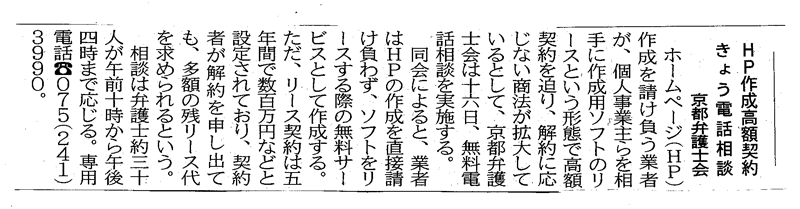 HP作成高額契約
きょう電話相談
京都弁護士会
ホームページ(HP)
作成を請け負う業者
が、個人事業主らを相
手に作成用ソフトのリ
ースという形態で高額
契約を迫り、解約に応
じない商法が拡大して
いるとして、京都弁護
士会は十六日、無料電
話相談を実施する。
同会によると、業者
はHPの作成を直接請
け負わず、ソフトをリ
ースする際の無料サー
ビスとして作成する。
ただ、リース契約は五
年間で数百万円などと
設定されており、契約
者が解約を申し出て
も、多額の残リース代
を求められるという。
相談は弁護士約三十
人が午前十時から午後
四時まで応じる。専用
電話☎075(241)
3990。